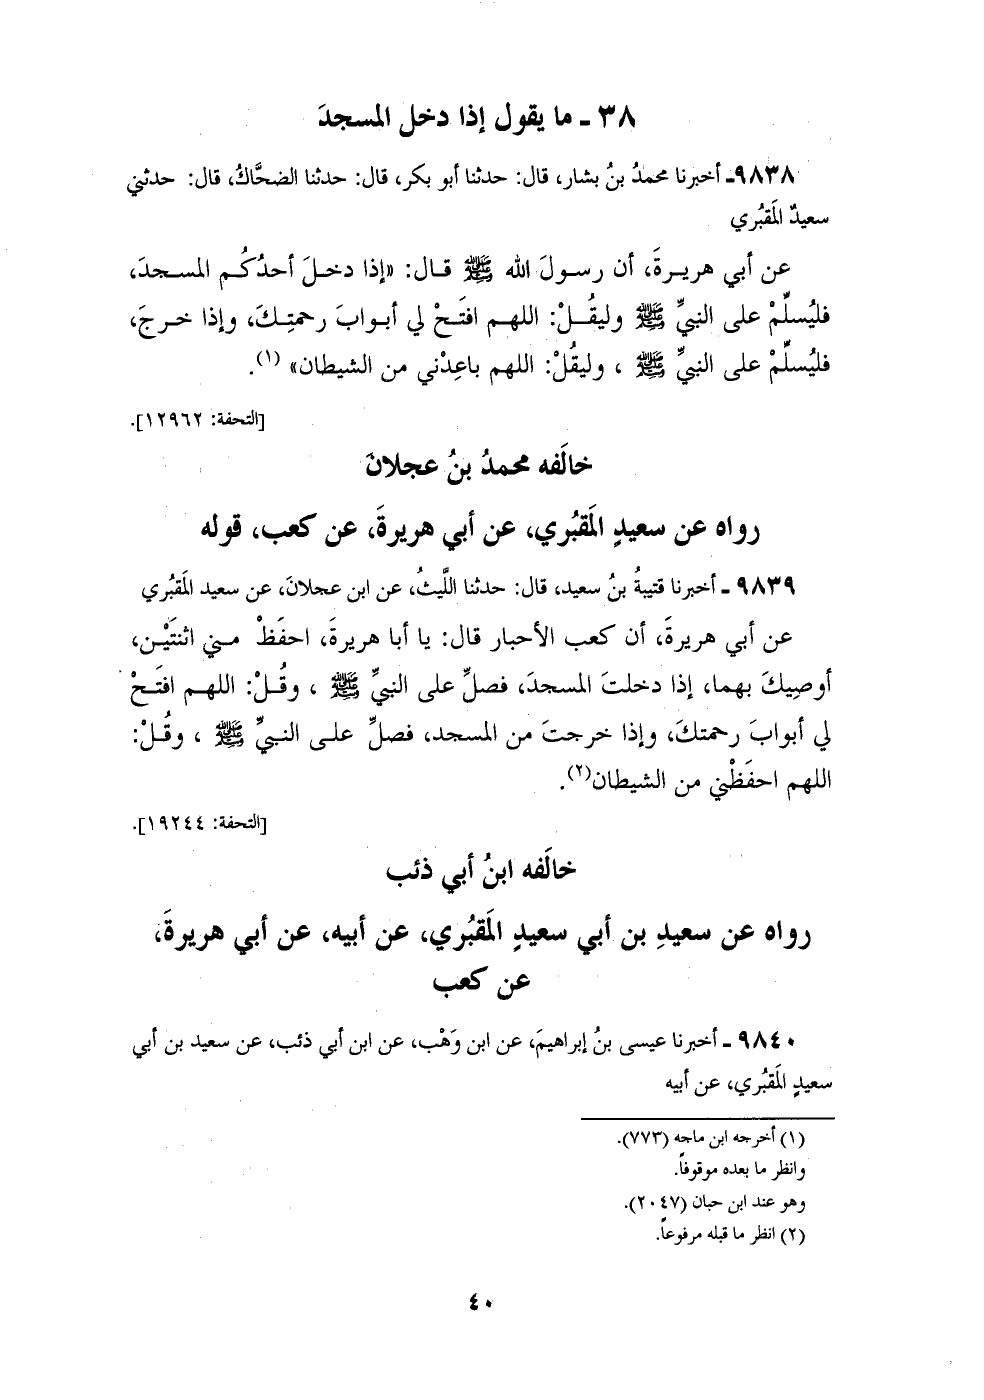 ٣٨ ـ ما يقول إذا دخل المسجدَ
٩٨٣٨ـ أخبرنا محمدُ بنُ بشار، قال: حدثنا أبو بكر، قال: حدثنا الضحَّاكُ، قال: حدثني
سعيدٌ المَقبُري
عن أبي هريرةَ، أن رسولَ الله ﷺ قال: «إذا دخلَ أحدُكُم المسجدَ،
فليُسلِّمْ على النبيِّ ﷺ وليقُلْ: اللهم افتَحْ لي أبوابَ رحمتِكَ، وإذا خرجَ،
فليُسلِّمْ على النبيِّ ﷺ ، وليقُلْ: اللهم باعِدْني من الشيطان» (١).
[التحفة: ١٢٩٦٢].
خالَفه محمدُ بنُ عجلانَ
رواه عن سعيدٍ المَقبُري، عن أبي هريرةَ، عن كعب، قوله
٩٨٣٩ ـ أخبرنا قتيبةُ بنُ سعيد، قال: حدثنا اللَّيثُ، عن ابن عجلانَ، عن سعيد المَقبُري
عن أبي هريرةَ، أن كعب الأحبار قال: يا أبا هريرةَ، احفَظْ مني اثنتَيْن،
أوصِيكَ بهما، إذا دخلتَ المسجدَ، فصلِّ على النبيِّ ﷺ ، وقُلْ: اللهم افتَحْ
لي أبوابَ رحمتكَ، وإذا خرجتَ من المسجد، فصلِّ على النبيِّ ﷺ ، وقُلْ:
اللهم احفَظْني من الشيطان(٢).
[التحفة: ١٩٢٤٤].
خالَفه ابنُ أبي ذئب
رواه عن سعيدِ بن أبي سعيدٍ المَقبُري، عن أبيه، عن أبي هريرةَ،
عن كعب
٩٨٤٠ ـ أخبرنا عيسى بنُ إبراهيمَ، عن ابن وَهْب، عن ابن أبي ذئب، عن سعيد بن أبي
سعيدٍ المَقبُري، عن أبيه
(١) أخرجه ابن ماجه (٧٧٣).
وانظر ما بعده موقوفاً.
وهو عند ابن حبان (٢٠٤٧).
(٢) انظر ما قبله مرفوعاً.
٤٠